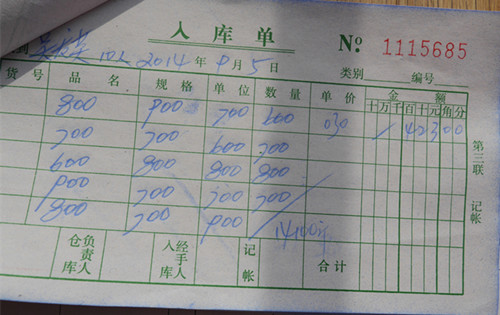 入库单 № 1115685
2014年9月5日 类别 编号
货号 品名 规格 单位 数量 单价 金额
十万千百十元角分
800 900 700 600 030 42300
700 700 600 700
600 800 800 800
900 700 700 700
800 700 900 14100斤
仓库负责人 入库经手人 记帐 合计
第三联 记帐